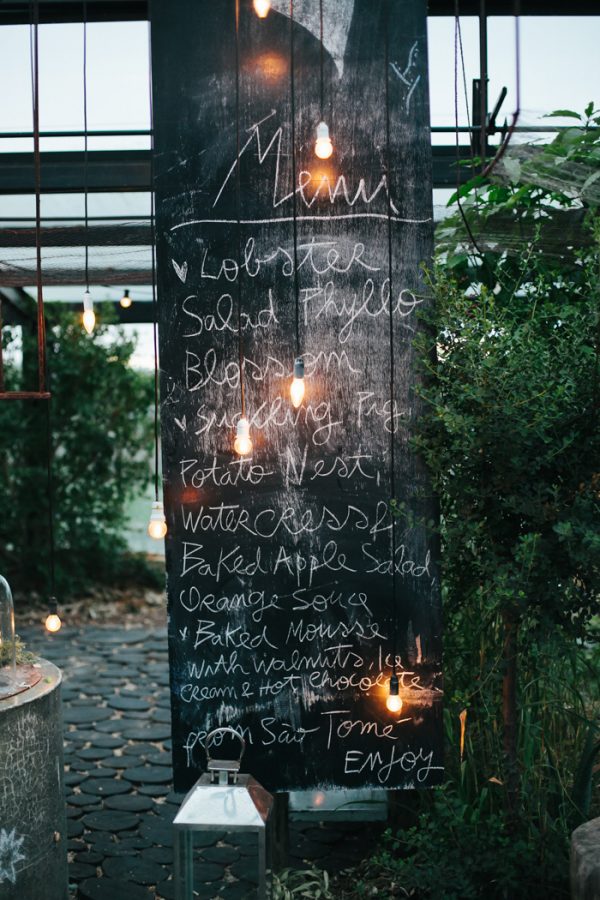 Menu
Lobster
Salad Phyllo
Blossom
Suckling Pig
Potato Nest,
Watercress &
Baked Apple Salad,
Orange Souce
Baked Mousse
with walnuts, Ice
Cream & Hot Chocolate
from São Tomé
ENJOY